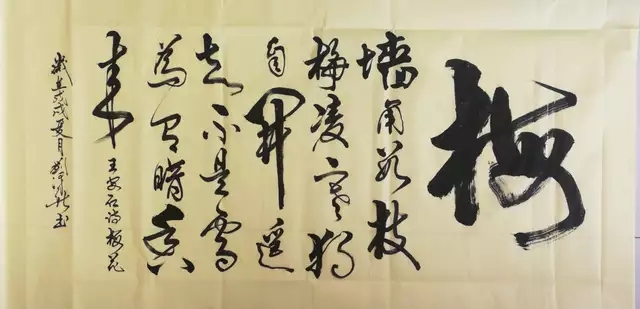 梅
墙角数枝
梅凌寒独
自開遥
知不是雪
為有暗香
来
王安石诗梅花
戊戌夏月书